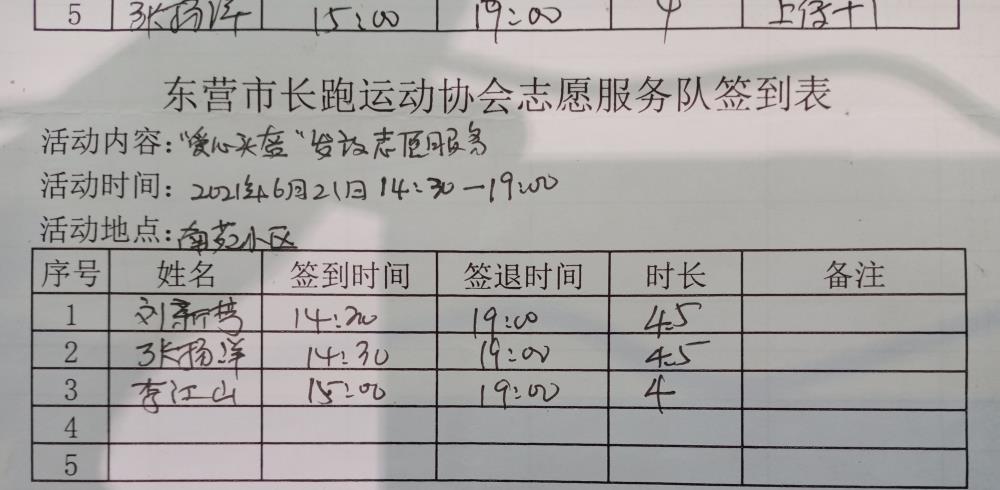 5 张扬洋 15:00 19:00 4
东营市长跑运动协会志愿服务队签到表
活动内容:"爱心头盔"发放志愿服务
活动时间:2021年6月21日14:30—19:00
活动地点:南苑小区
序号 姓名 签到时间 签退时间 时长 备注
1 刘新 14:30 19:00 4.5
2 张扬洋 14:30 19:00 4.5
3 李江山 15:00 19:00 4
4
5